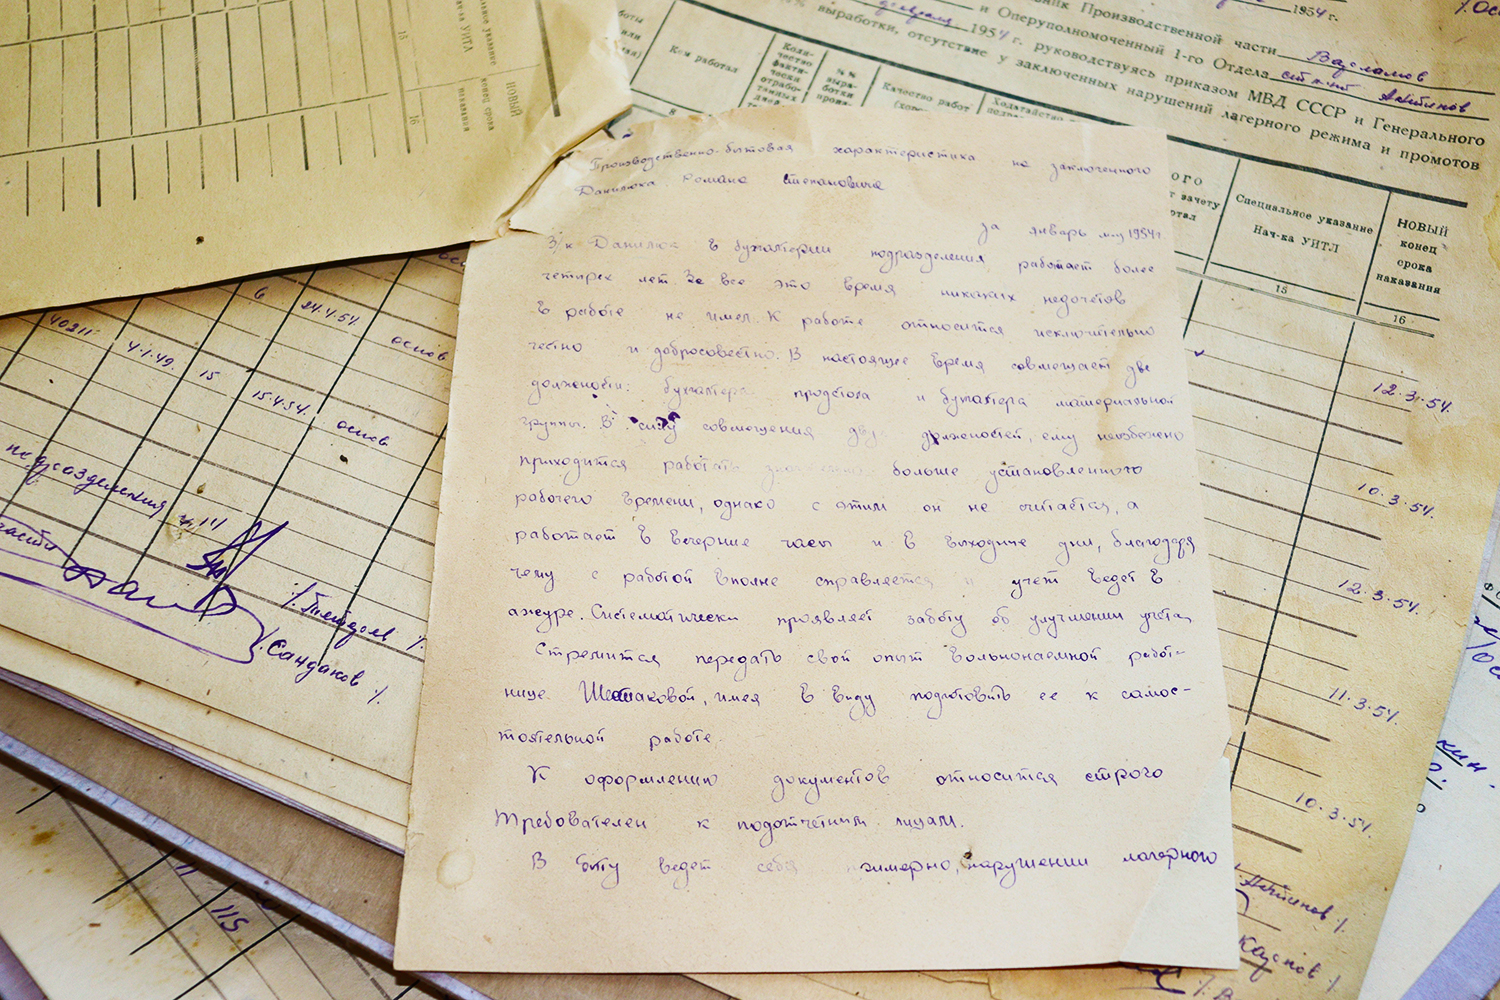 1954 г.
Производственной части Варламов
и Оперуполномоченный 1-го Отдела
февраля 1954 г. руководствуясь приказом МВД СССР и Генерального
% выработки, отсутствие у заключенных нарушений лагерного режима и промотов
Кем работал
Коли-
чество
факти-
чески
отрабо-
танных
дней
% %
выра-
ботки
Качество работ
Ходатайство
8
зачету
Специальное указание
Нач-ка УИТЛ
НОВЫЙ
конец
срока
наказания
15
16
12.3.54.
10.3.54.
12.3.54.
11.3.54.
10.3.54.
указание
УИТЛ
15
НОВЫЙ
конец срока
наказания
16
6
24.4.54.
основ
40211
4.1.49.
15
15.4.54.
основ
подразделения
части
/.Санданов /.
115
Производственно-бытовая характеристика на заключенного
Данилюка Романа Степановича
за январь м-ц 1954 г.
З/к Данилюк в бухгалтерии подразделения работает более
четырех лет За все это время никаких недочетов
в работе не имел. К работе относится исключительно
честно и добросовестно. В настоящее время совмещает две
должности: бухгалтера продстола и бухгалтера материальной
группы. В силу совмещения двух должностей, ему неизбежно
приходится работать больше установленного
рабочего времени, однако с этим он не считается, а
работает в вечерние часы и в выходные дни, благодаря
чему с работой вполне справляется и учет ведет в
ажуре. Систематически проявляет заботу об улучшении учета,
Стремится передать свой опыт вольнонаемной работ-
нице Шестаковой, имея в виду подготовить ее к самос-
тоятельной работе.
К оформлению документов относится строго
требователен к подотчетным лицам.
В быту ведет себя примерно, нарушений лагерного